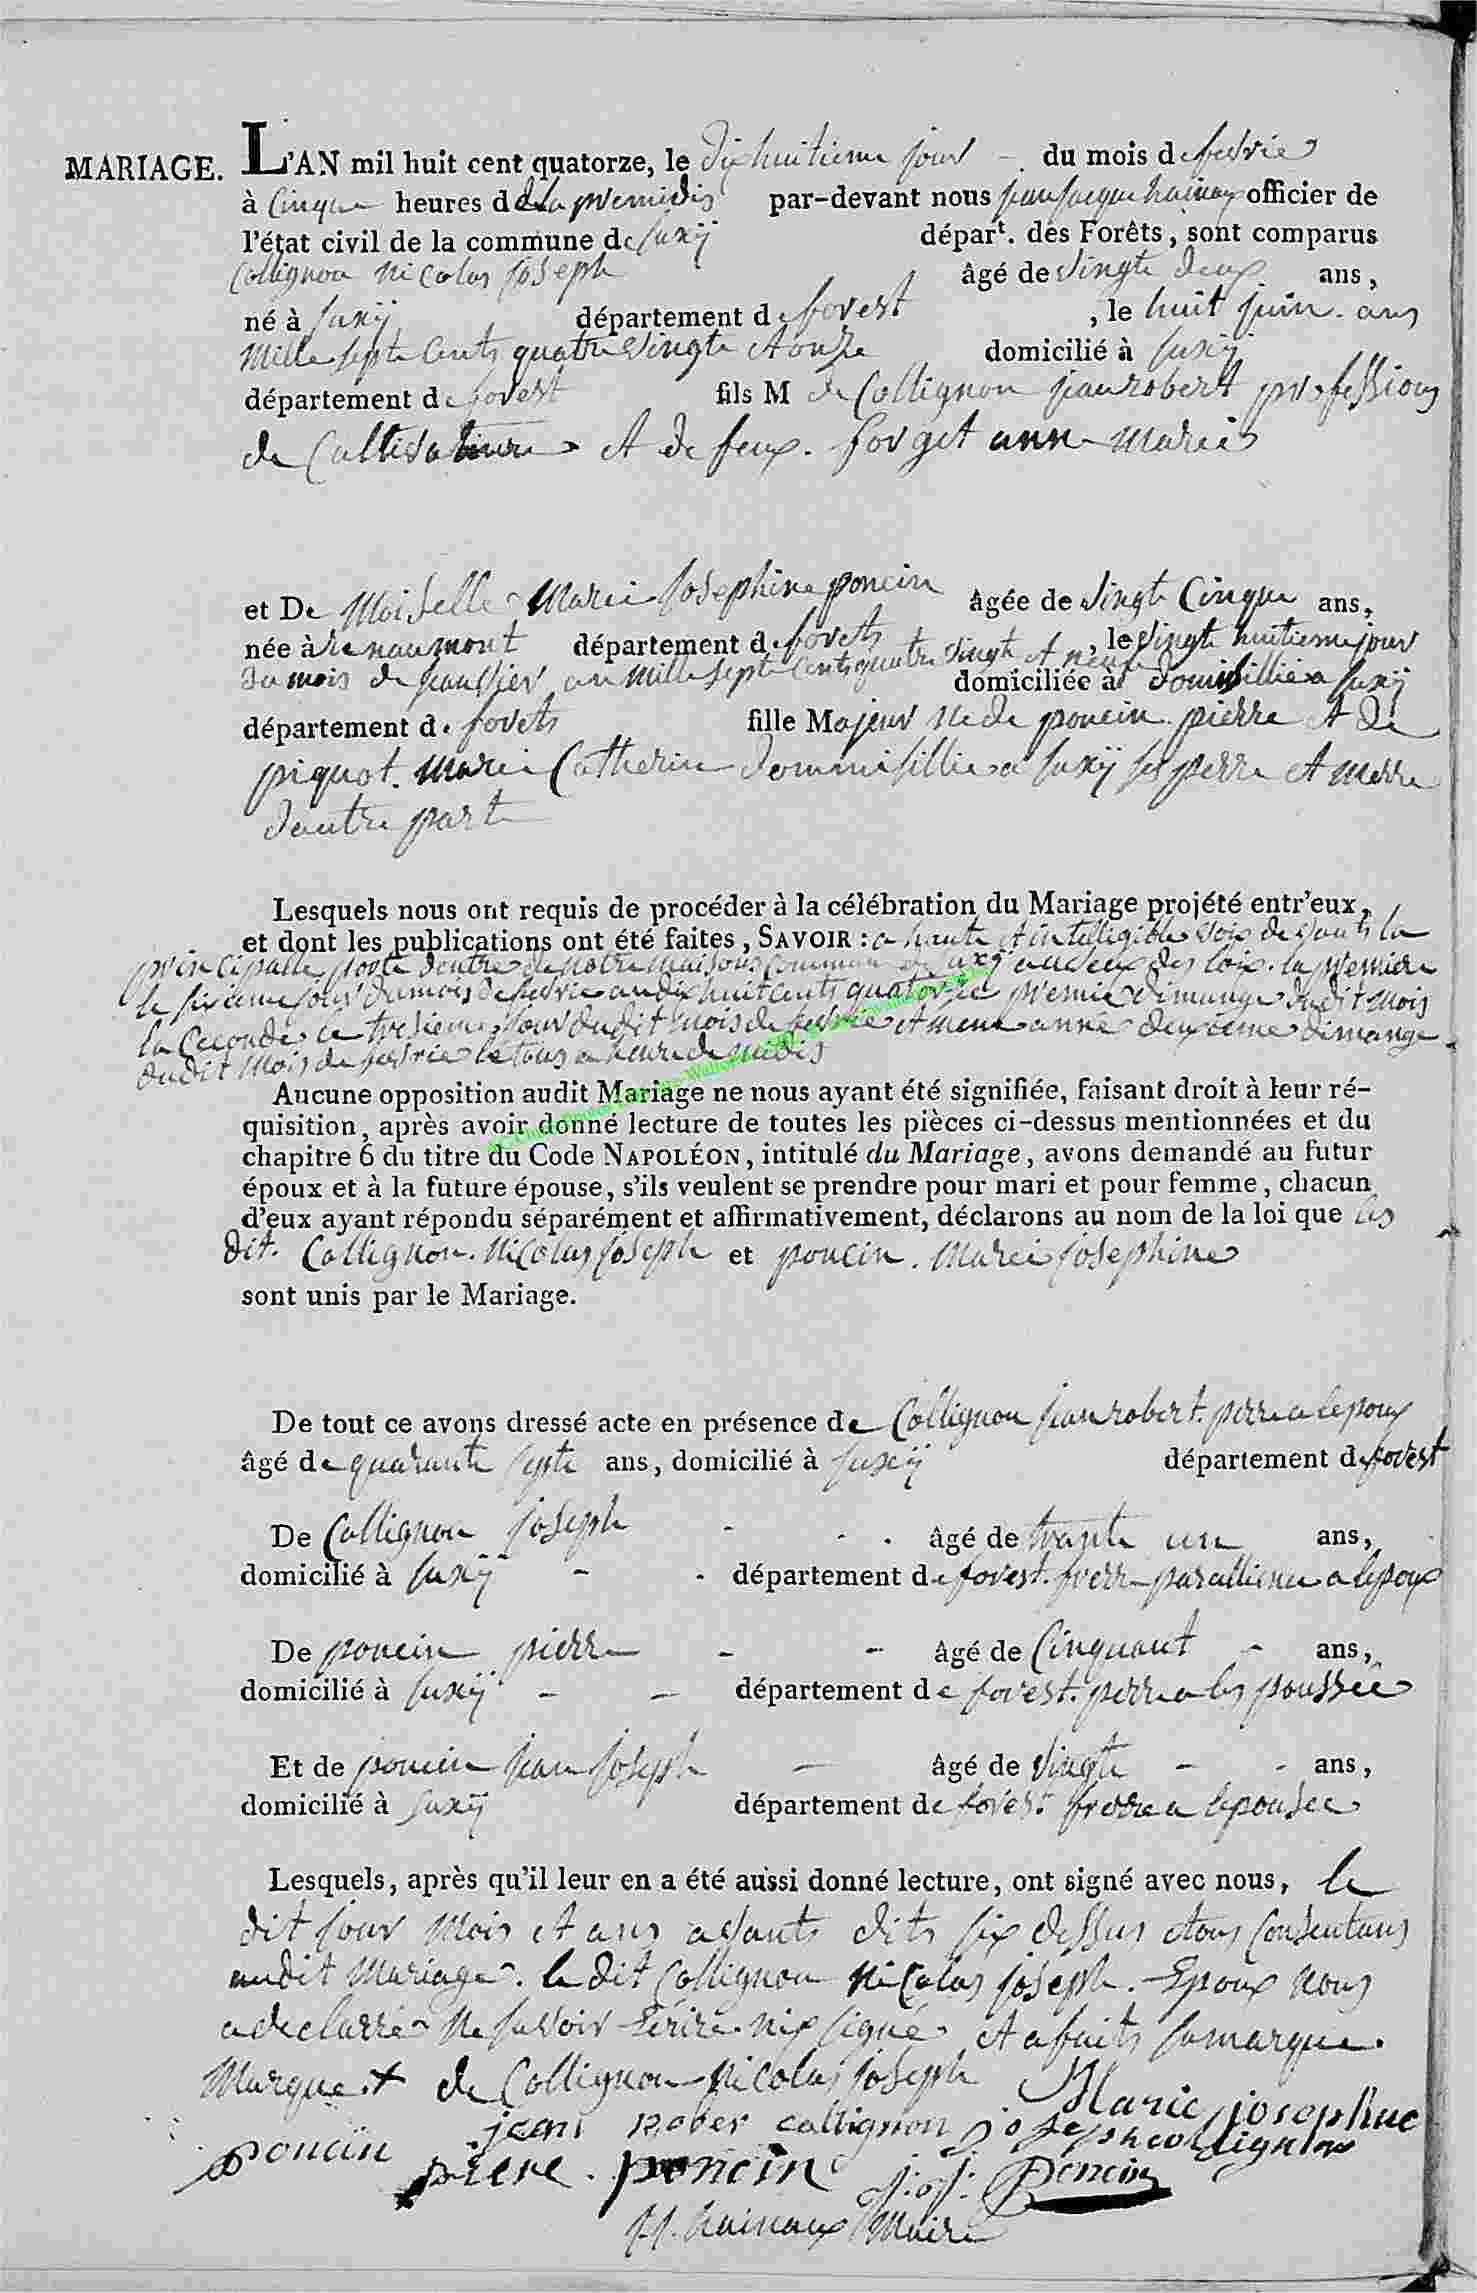 MARIAGE. L'AN mil huit cent quatorze, le dix huitieme jour - du mois de fevrie
à Cinque heures de la premidis par-devant nous jean jacque hainaux officier de
l'état civil de la commune de Suxÿ départ. des Forêts, sont comparus
Collignon nicolas joseph âgé de vingte deux ans,
né à Suxÿ département de forest, le huit juin. ans
mille septe Cents quatre vingte et onze domicilié à Suxÿ
département de forest fils M de Collignon jean robert professions
de Cultivateure et de feux. forget anne marie
et De Moiselle Marie Josephine poncin âgée de vingt Cinque ans,
née à renaumont département de forets, le vingt huitieme jour
du mois de janvier an mille septe Cents quatre vingt et neufe domiciliée à domisilliée a Suxÿ
département de forets fille Majeur né de poncin pierre et de
piquot. marie Catherine dommisilliés a Suxÿ ses perre et merre
dautre part
Lesquels nous ont requis de procéder à la célébration du Mariage projété entr'eux,
et dont les publications ont été faites, SAVOIR : a haute et intelligible voix devant la
principalle porte dentrée de notre maisons commun de Suxÿ au deux des lois. la premiere
le sixieme jour du mois de fevrie an dix huit cents quatorze premie dimange dudit mois
la ceconde le tresieme jour dudit mois de fevrie et meme année deuxieme dimange
dudit mois de fevrie le tous a heure de midis
Aucune opposition audit Mariage ne nous ayant été signifiée, faisant droit à leur ré-
quisition, après avoir donné lecture de toutes les pièces ci-dessus mentionnées et du
chapitre 6 du titre du Code NAPOLÉON, intitulé du Mariage, avons demandé au futur
époux et à la future épouse, s'ils veulent se prendre pour mari et pour femme, chacun
d'eux ayant répondu séparément et affirmativement, déclarons au nom de la loi que les
dit. Collignon. Nicolas joseph et poncin. Marie josephine
sont unis par le Mariage.
De tout ce avons dressé acte en présence de Collignon jean robert. perre a lepoux
âgé de quarante septe ans, domicilié à Suxÿ département de forest
De Collignon joseph - - . âgé de trante une ans,
domicilié à Suxÿ - . département de forest. frerre parallienne a lepoux
De poncin pierre - - âgé de Cinquant - ans,
domicilié à Suxÿ - - département de forest. perre a les poussée
Et de poncin jean joseph - âgé de vingte - - ans,
domicilié à Suxÿ département de forest frerre a lepousee
Lesquels, après qu'il leur en a été aussi donné lecture, ont signé avec nous, le
dit jour mois et ans avants dits six dessus et tous consentans
audit mariage. le dit Collignon Nicolas joseph. Epoux nous
a declarré ne savoir Ecrire nix signé et a faits sa marque.
Marque + de Collignon Nicolas joseph Marie josephine
poncin jean Rober collignon joseph collignon
piere. poncin j: j: Poncin
J J. hainaux Maire